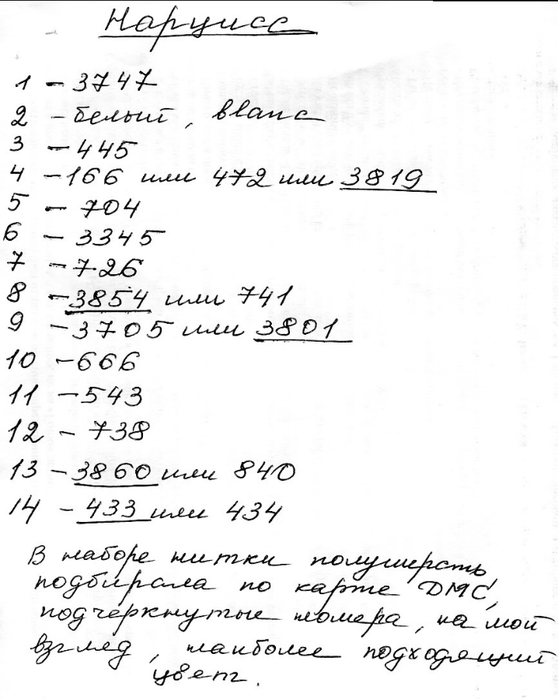 Нарцисс
1 - 3747
2 - белый, blanc
3 - 445
4 - 166 или 472 или 3819
5 - 704
6 - 3345
7 - 726
8 - 3854 или 741
9 - 3705 или 3801
10 - 666
11 - 543
12 - 738
13 - 3860 или 840
14 - 433 или 434
В наборе нитки полушерсть,
подбирала по карте DMC,
подчеркнутые номера, на мой
взгляд, наиболее подходящий
цвет.